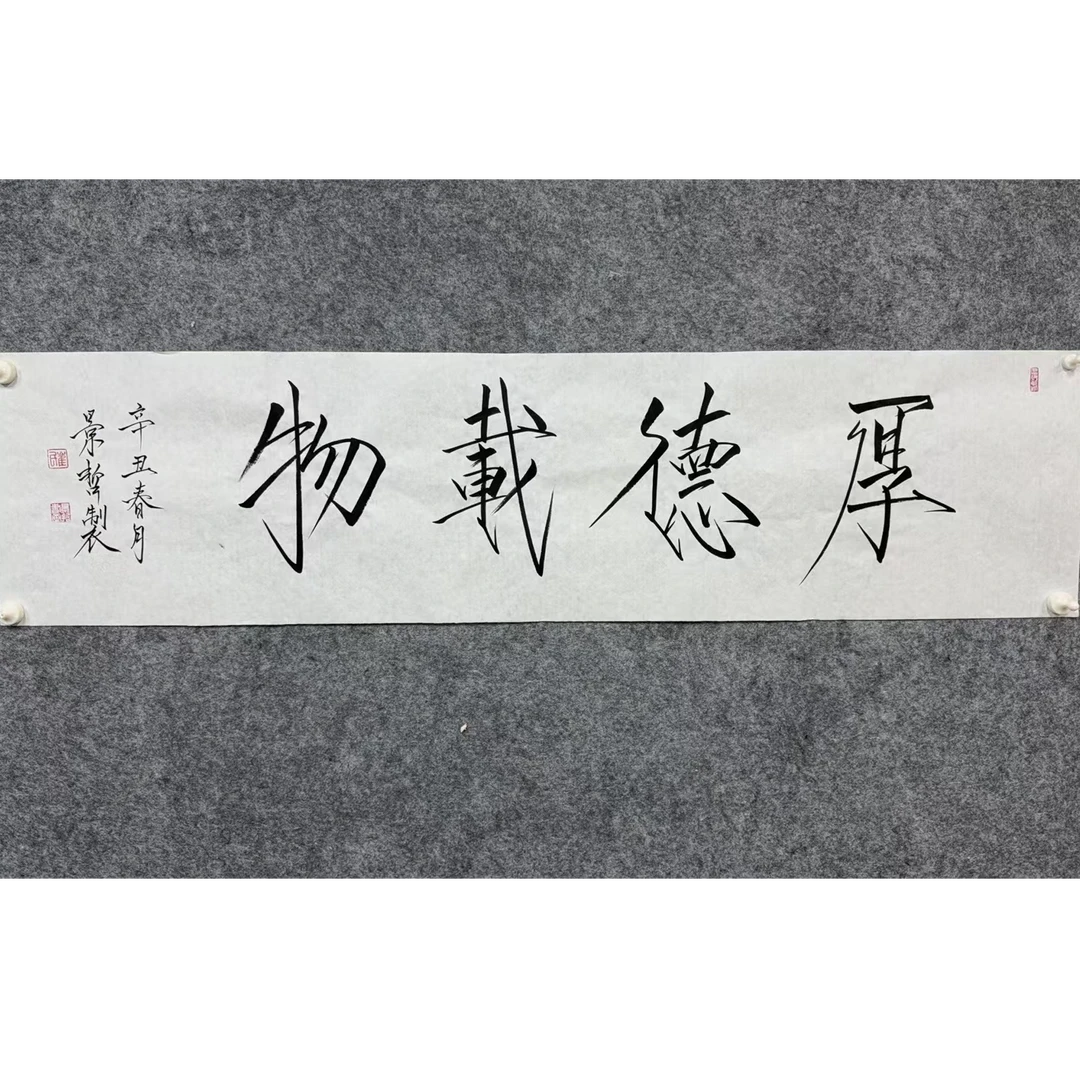 厚德載物
辛丑春月
景哲製